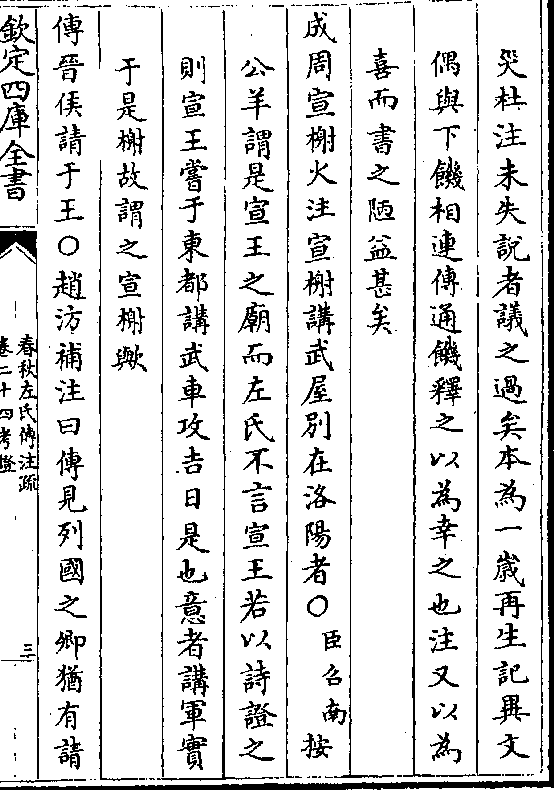 災杜注未失說者議之過矣本為一歲再生記異文
偶與下饑相連傳通饑釋之以為幸之也注又以為
喜而書之陋益甚矣
成周宣榭火注宣榭講武屋別在洛陽者〇臣召南按
公羊謂是宣王之廟而左氏不言宣王若以詩證之
則宣王嘗于東都講武車攻吉日是也意者講軍實
于是榭故謂之宣榭歟
傳晉侯請于王〇趙汸補注曰傳見列國之卿猶有請
欽定四庫全書
春秋左氏傳注疏
卷二十四考證
三